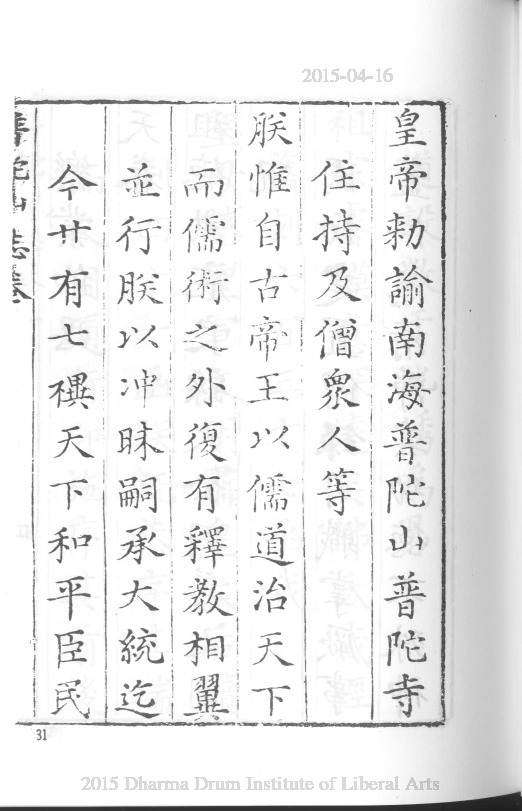 2015-04-16
皇帝勑諭南海普陀山普陀寺
住持及僧衆人等
朕惟自古帝王以儒道治天下
而儒術之外復有釋教相翼
並行朕以冲昧嗣承大統迄
今廿有七禩天下和平臣民
普陀山志卷
31
2015 Dharma Drum Institute of Liberal Arts